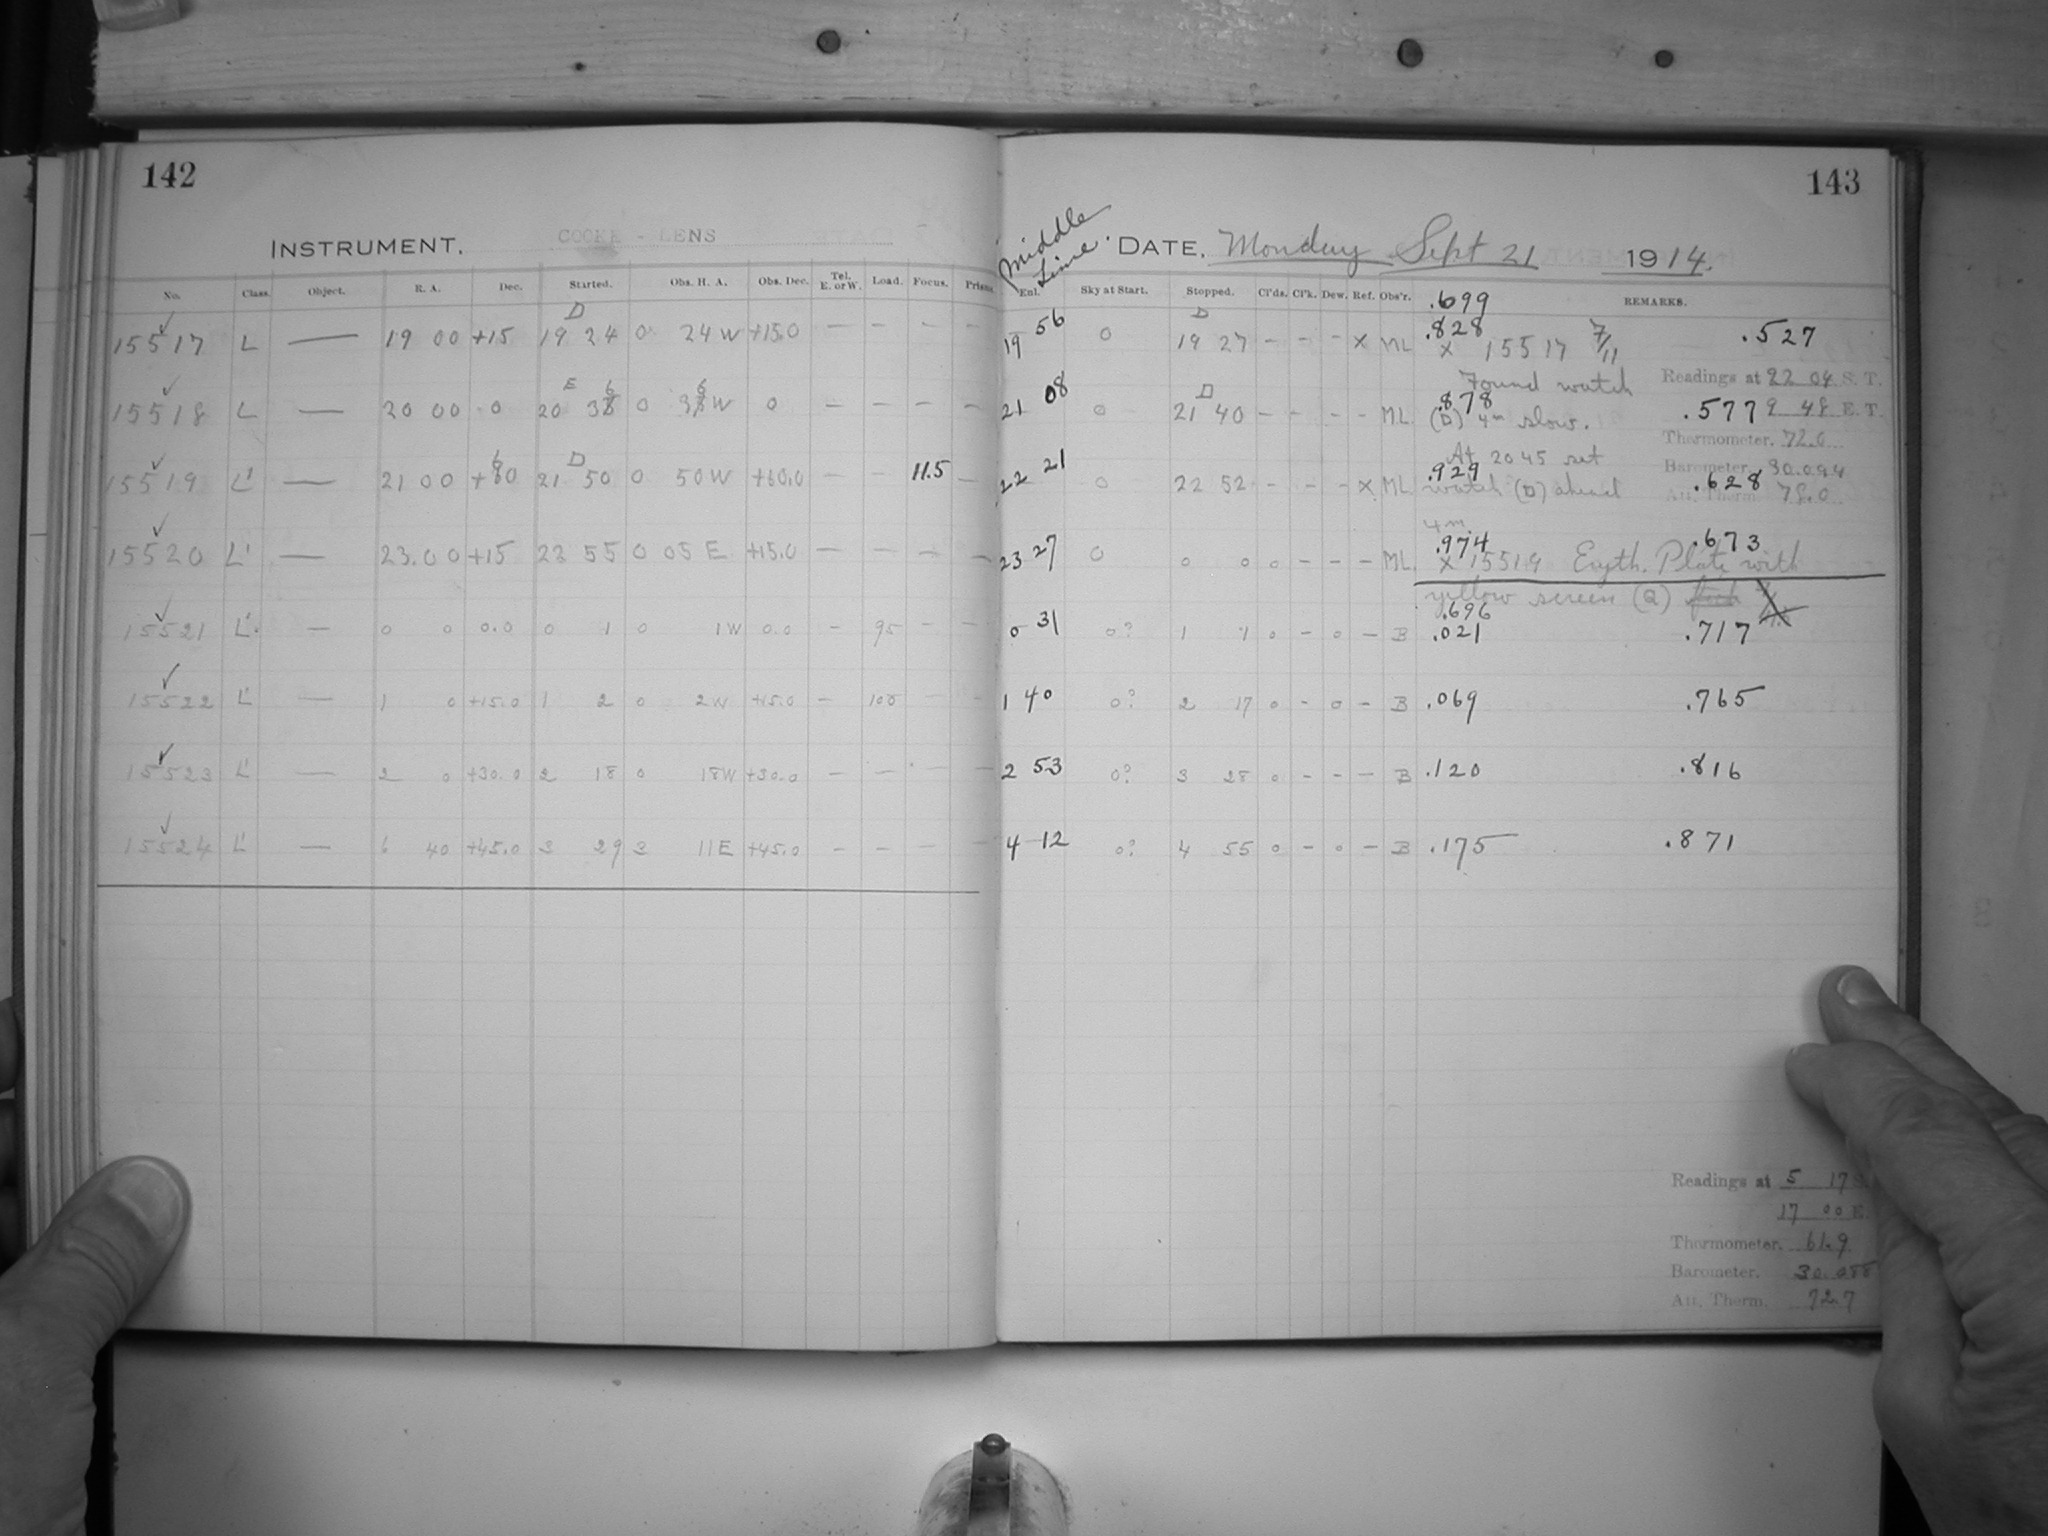 142
INSTRUMENT. COOKE - LENS
No. Class. Object. R. A. Dec. Started. Obs. H. A. Obs. Dec. Tel. E. or W. Load. Focus. Prisms.
15517 L — 19 00 +15 D 19 24 0 24 W +15.0 — — — —
15518 L — 20 00 0 E 20 36 0 36 W 0 — — — —
15519 L' — 21 00 +60 D 21 50 0 50 W +60.0 — — 11.5 —
15520 L' — 23.00 +15 22 55 0 05 E +15.0 — — — —
15521 L' — 0 0 0.0 0 1 0 1 W 0.0 — 95 — —
15522 L' — 1 0 +15.0 1 2 0 2 W +15.0 — 100 — —
15523 L' — 2 0 +30.0 2 18 0 18 W +30.0 — — — —
15524 L' — 6 40 +45.0 3 29 3 11 E +45.0 — — — —
143
Middle Time. DATE, Monday Sept 21 1914.
Enl. Sky at Start. Stopped. Cl'ds. Cl'k. Dew. Ref. Obs'r. .699 REMARKS.
19 56 0 D 19 27 — — — x ML .828 x 15517 7/11 .527
Found watch Readings at 22 04 S. T.
21 08 0 D 21 40 — — — — ML .878 (D) 4m slow. .577 9 48 E. T.
Thermometer. 72.0
At 20 45 set Barometer. 30.094
22 21 0 22 52 — — — x ML .929 watch (D) ahead .628 Att. Therm. 78.0
4m.
23 27 0 0 0 0 — — — ML .974 x 15519 Eryth. Plate with .673
yellow screen (Q)
.696
0 31 0? 1 1 0 — 0 — B .021 .717
1 40 0? 2 17 0 — 0 — B .069 .765
2 53 0? 3 28 0 — — — B .120 .816
4 12 0? 4 55 0 — 0 — B .175 .871
Readings at 5 17 S.
17 00 E.
Thermometer. 61.9
Barometer. 30.088
Att. Therm. 72.7